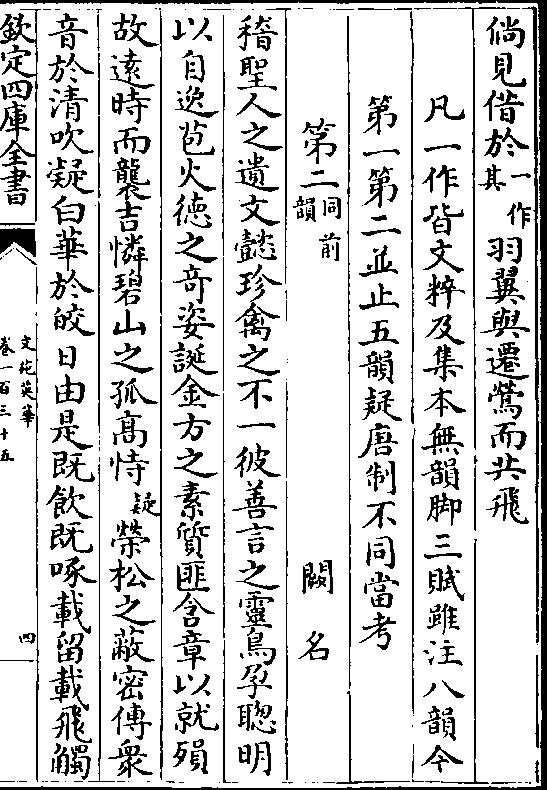 倘見借於一作其羽翼與遷鶯而共飛
凡一作皆文粹及集本無韻脚三賦雖注八韻今
第一第二並止五韻疑唐制不同當考
第二同前韻 闕名
稽聖人之遺文懿珍禽之不一彼善言之靈鳥孕聰明
以自逸苞火德之奇姿誕金方之素質匪含章以就殞
故遠時而襲吉憐碧山之孤高恃疑榮松之蔽密傳衆
音於清吹凝白華於皎日由是既飲既啄載留載飛觸
欽定四庫全書
文苑英華
卷一百三十五
四